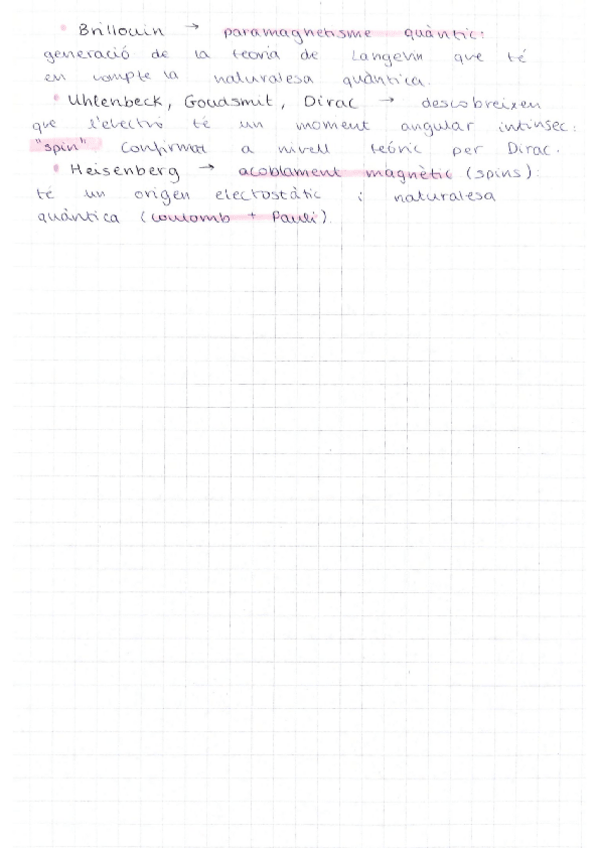 • Brillouin → paramagnetisme quàntic:
generació de la teoria de Langevin que té
en compte la naturalesa quàntica.
• Uhlenbeck, Goudsmit, Dirac → descobreixen
que l'electró té un moment angular intínsec:
"spin" Confirmat a nivell teòric per Dirac.
• Heisenberg → acoblament magnètic (spins):
té un origen electrostàtic i naturalesa
quàntica (coulomb + Pauli).